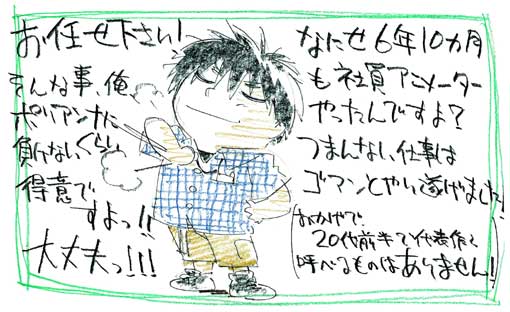 なにせ6年10カ月
も社員アニメーター
やったんですよ?
つまんない仕事は
ゴマンとやい遂げました!
(おかげで
20代前半で代表作と
呼べるものはありません!)
お任せ下さい!
そんな事、俺
ポリアンナに
負けないくらい
得意で
すよっ!!
大丈夫っ!!!